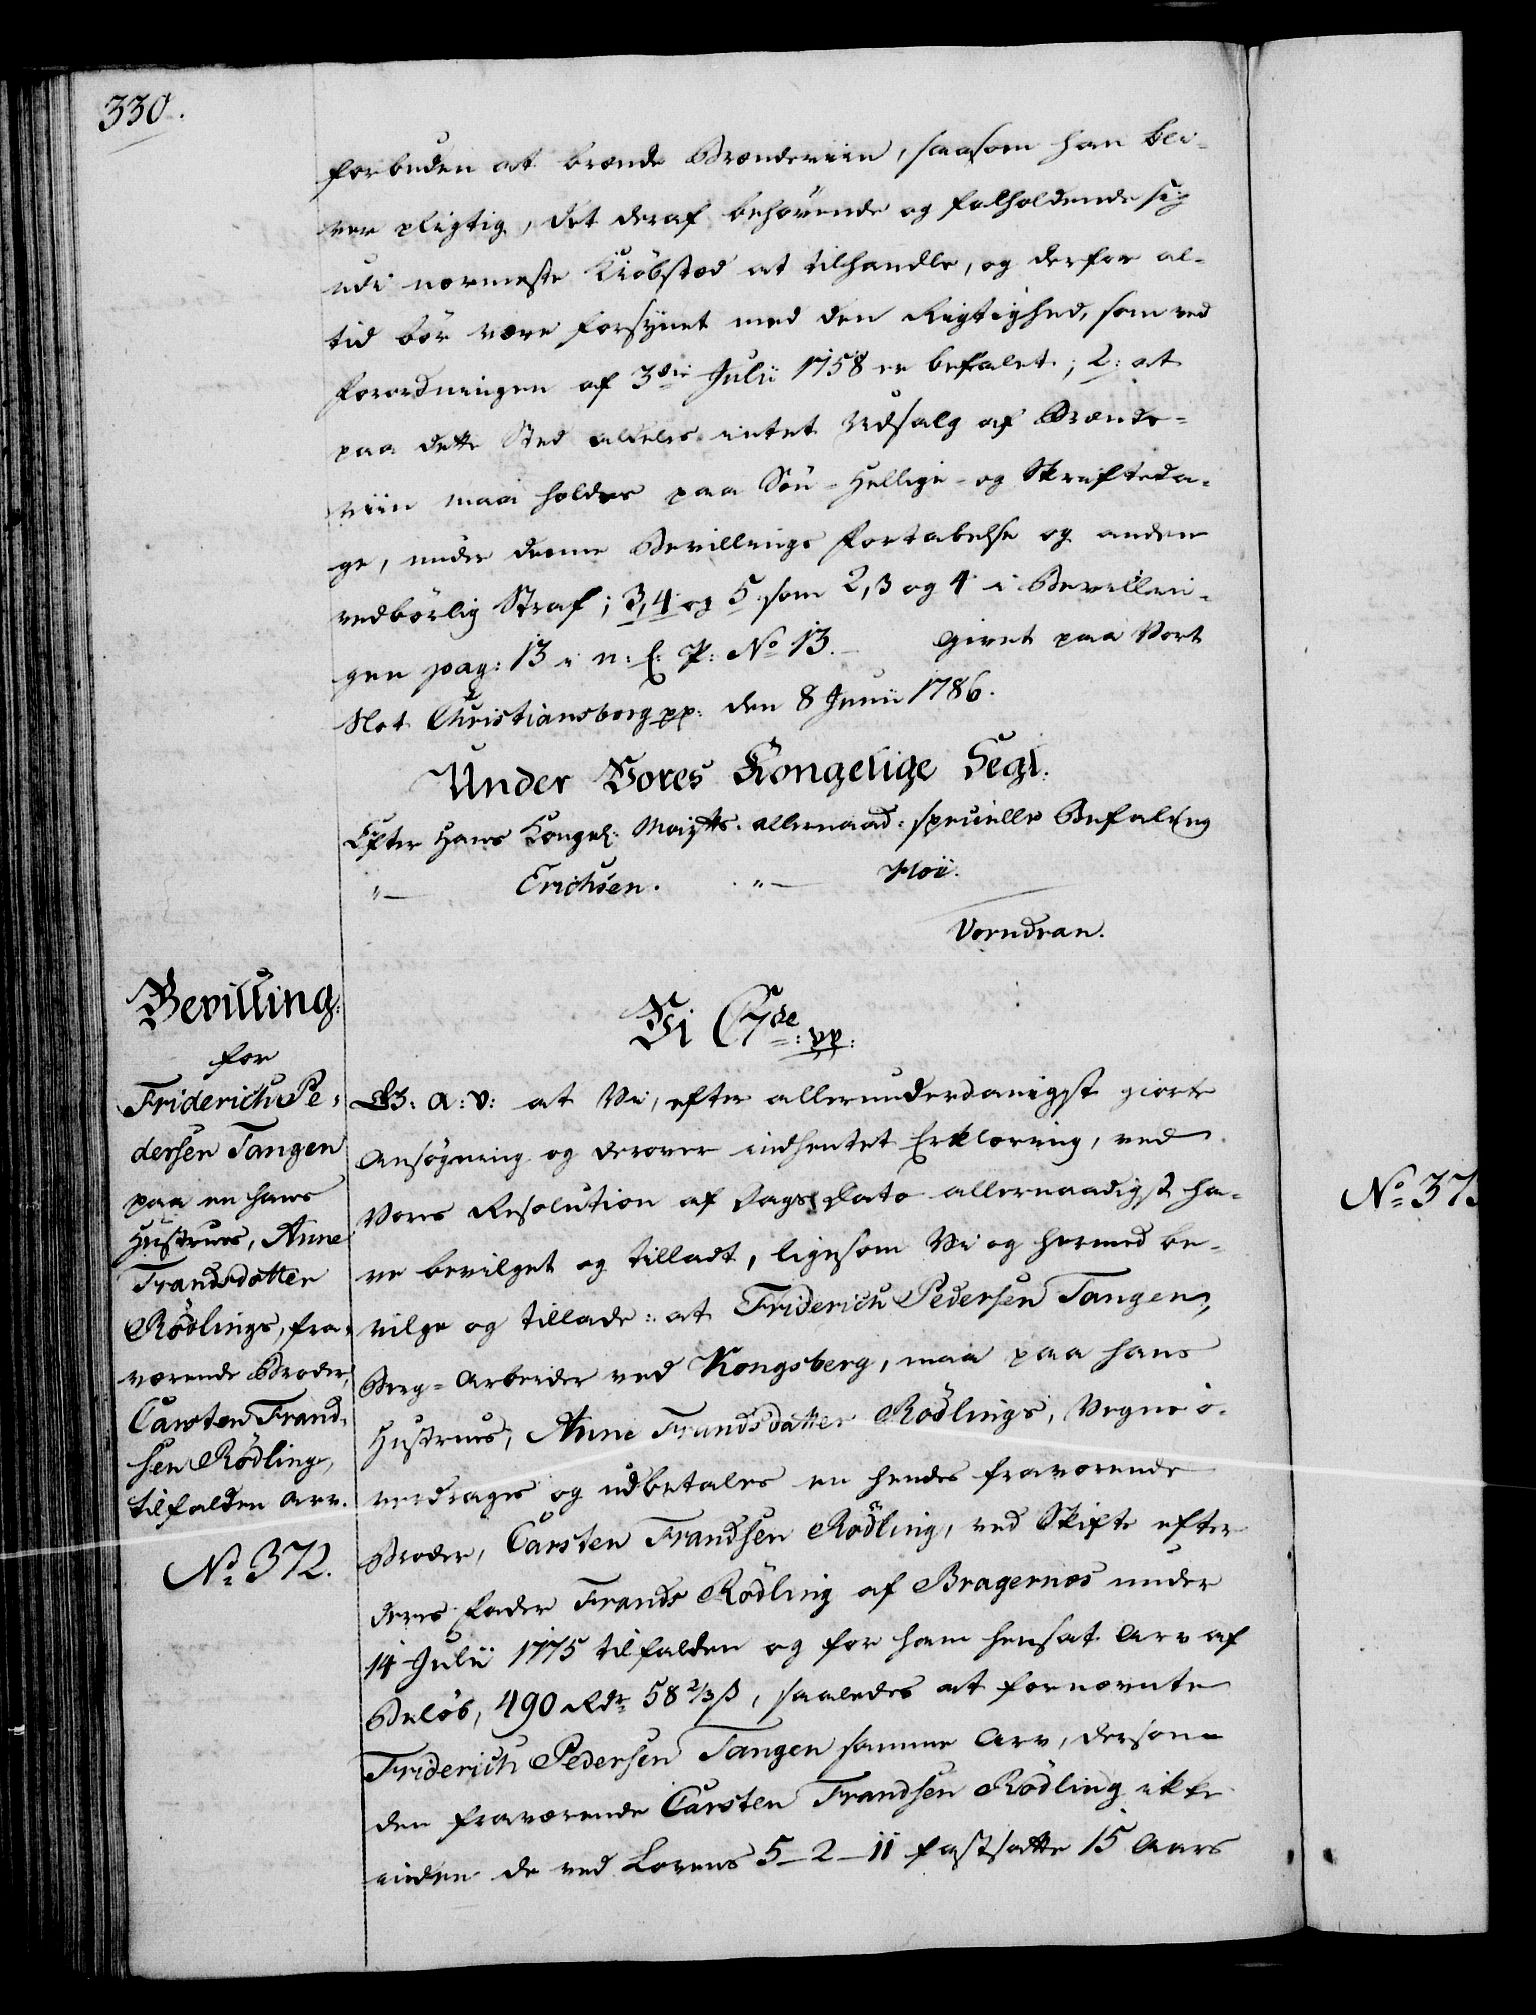 330.
forbuden at brænde Brændeviin, saasom han bli-
ver pligtig, det deraf behøvende og falholdende sig
udi nærmeste Kiøbstæd at tilhandle, og derfor al-
tid bør være forsynet med den Rigtighed, som ved
Forordningen af 3die Julii 1758 er befalet; 2: at
paa dette Sted aldeles intet Udsalg af Brænde-
viin maa holdes paa Søn- Hellige- og Skrifteda-
ge, under denne Bevillings Fortabelse og anden
vedbørlig Straf; 3, 4 og 5 som 2, 3 og 4 i Bevillin-
gen pag: 13 i n: E: P: No 13. Givet paa Vort
Slot Christiansborg pp: den 8 Junii 1786.
Under Vores Kongelige Segl.
Efter Hans Kongel: Mayts. allernaad: specielle Befaling
"— Erichsen. "— Hoÿ.
Vorndran.
Bevilling
for
Friderich Pe-
dersen Tangen
paa en hans
Hustrues, Anne
Frandsdatter
Rødlings, fra-
værende Broder,
Carsten Frand-
sen Rødling,
tilfalden Arv.
No 372.
Vi C7de: pp:
G: A: V: at Vi, efter allerunderdanigst giorte
Ansøgning og derover indhentet Erklæring, ved
Vores Resolution af Dags Dato allernaadigst ha-
ve bevilget og tilladt, ligesom Vi og hermed be-
vilge og tillade: at Friderich Pedersen Tangen,
Berg-Arbeider ved Kongsberg, maa paa hans
Hustrues, Anne Frandsdatter Rødlings, Vegne o-
verdrages og udbetales en hendes fraværende
Broder, Carsten Frandsen Rødling, ved Skifte efter
deres Fader Frands Rødling af Bragernæs under
14 Julii 1775 tilfalden og for ham hensat Arv af
Beløb, 490 Rdr 58 2/3 ß, saaledes at fornævnte
Friderich Pedersen Tangen samme Arv, dersom
den fraværende Carsten Frandsen Rødling ikke
inden de ved Lovens 5–2–11 fastsatte 15 Aars
No 373